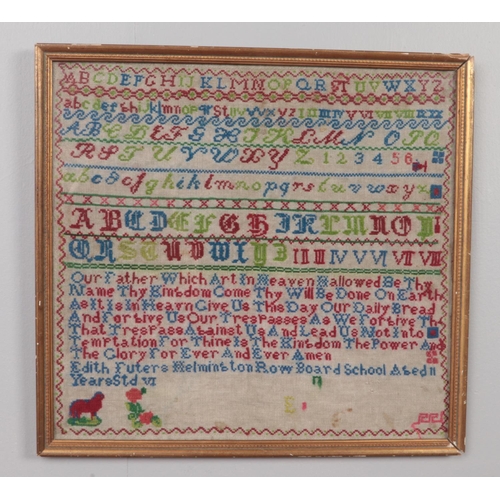 ABCDEFGHIJKLMNOPQRSTUVWXYZ
abcdefghijklmnopqrstuvwxyz I II III IV V VI VII VIII IX
ABCDEFGHIKLMNOPQ
RSTUVWXYZ 123456
abcdefghiklmnopqrstuvwxyz
ABCDEFGHIKLMNOP
QRSTUVWXYZ I II III IV V VI VII VIII
Our Father Which Art In Heaven Hallowed Be Thy
Name Thy Kingdom Come Thy Will Be Done On Earth
As It Is In Heavn Give Us This Day Our Daily Bread
And Forgive Us Our Trespasses As We Forgive Th
That Trespass Against Us And Lead Us Not Into
Temptation For Thine Is The Kingdom The Power And
The Glory For Ever And Ever Amen
Edith Futers Helmington Row Board School Aged 11
Years Std VI